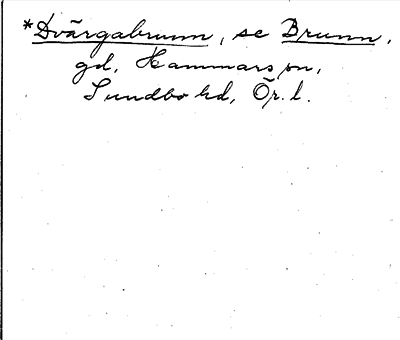 *Dvärgabrunn, se Brunn,
gd, Hammars sn,
Sundbo hd, Ör. l.